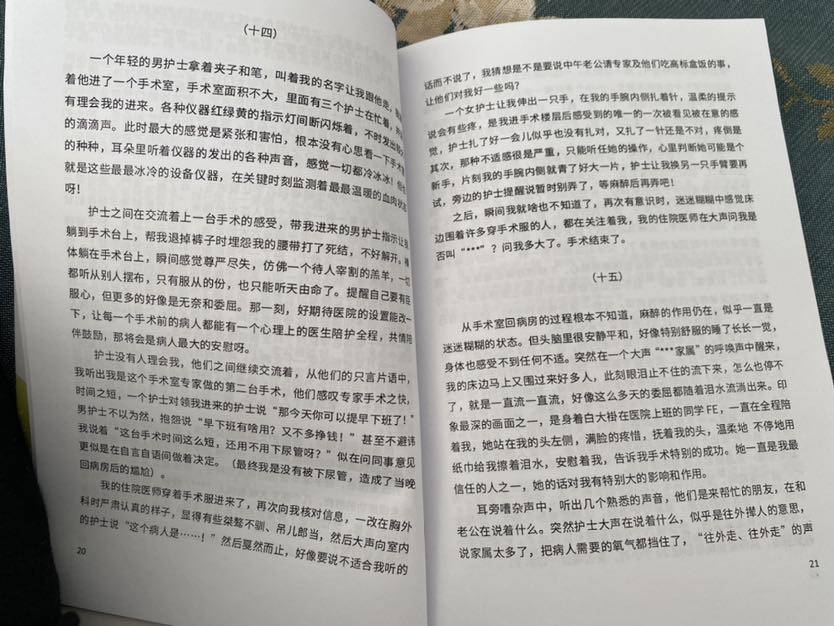 （十四）
一个年轻的男护士拿着夹子和笔，叫着我的名字让我跟他走，
着他进了一个手术室，手术室面积不大，里面有三个护士在忙着，
有理会我的进来。各种仪器红绿黄的指示灯间断闪烁着，不时发出
的滴滴声。此时最大的感觉是紧张和害怕，根本没有心思看一下手术
的种种，耳朵里听着仪器的发出的各种声音，感觉一切都冷冰冰！但
就是这些最最冰冷的设备仪器，在关键时刻监测着最最温暖的血肉状
呀！
护士之间在交流着上一台手术的感受，带我进来的男护士指示让我
躺到手术台上，帮我退掉裤子时埋怨我的腰带打了死结，不好解开。
体躺在手术台上，瞬间感觉尊严尽失，仿佛一个待人宰割的羔羊，一切
都听从别人摆布，只有服从的份，也只能听天由命了。提醒自己要有臣
服心，但更多的好像是无奈和委屈。那一刻，好期待医院的设置能改一
下，让每一个手术前的病人都能有一个心理上的医生陪护全程，共情陪
伴鼓励，那将会是病人最大的安慰呀。
护士没有人理会我，他们之间继续交流着，从他们的只言片语中，
我听出我是这个手术室专家做的第二台手术，他们感叹专家手术之快，
时间之短，一个护士对领我进来的护士说“那今天你可以提早下班了！”
男护士不以为然，抱怨说“早下班有啥用？又不多挣钱！”甚至不避讳
我说着“这台手术时间这么短，还用不用下尿管呀？”似在问同事意见
更似是在自言自语间做着决定。（最终我是没有被下尿管，造成了当晚
回病房后的尴尬）。
我的住院医师穿着手术服进来了，再次向我核对信息，一改在胸外
科时严肃认真的样子，显得有些桀骜不驯、吊儿郎当，然后大声向室内
的护士说“这个病人是……！”然后戛然而止，好像要说不适合我听的
20
话而不说了，我猜想是不是要说中午老公请专家及他们吃高标盒饭的事，
让他们对我好一些吗？
一个女护士让我伸出一只手，在我的手腕内侧扎着针，温柔的提示
说会有些疼，是我进手术楼层后感受到的唯一的一次被看见被在意的感
觉，护士扎了好一会儿似乎也没有扎对，又扎了一针还是不对，疼倒是
其次，那种不适感很是严重，只能听任她的操作，心里判断她可能是个
新手，片刻我的手腕内侧就青了好大一片，护士让我换另一只手臂要再
试，旁边的护士提醒说暂时别弄了，等麻醉后再弄吧！
之后，瞬间我就啥也不知道了，再次有意识时，迷迷糊糊中感觉床
边围着许多穿手术服的人，都在关注着我，我的住院医师在大声问我是
否叫“***”？问我多大了。手术结束了。
（十五）
从手术室回病房的过程根本不知道，麻醉的作用仍在，似乎一直是
迷迷糊糊的状态。但头脑里很安静平和，好像特别舒服的睡了长长一觉，
身体也感受不到任何不适。突然在一个大声“***家属”的呼唤声中醒来，
我的床边马上又围过来好多人，此刻眼泪止不住的流下来，怎么也停不
了，就是一直流一直流，好像这么多天的委屈都随着泪水流淌出来。印
象最深的画面之一，是身着白大褂在医院上班的同学 FE，一直在全程陪
着我，她站在我的头左侧，满脸的疼惜，抚着我的头，温柔地 不停地用
纸巾给我擦着泪水，安慰着我，告诉我手术特别的成功。她一直是我最
信任的人之一，她的话对我有特别大的影响和作用。
耳旁嘈杂声中，听出几个熟悉的声音，他们是来帮忙的朋友，在和
老公在说着什么。突然护士大声在说着什么，似乎是往外撵人的意思，
说家属太多了，把病人需要的氧气都挡住了，“往外走、往外走”的声
21